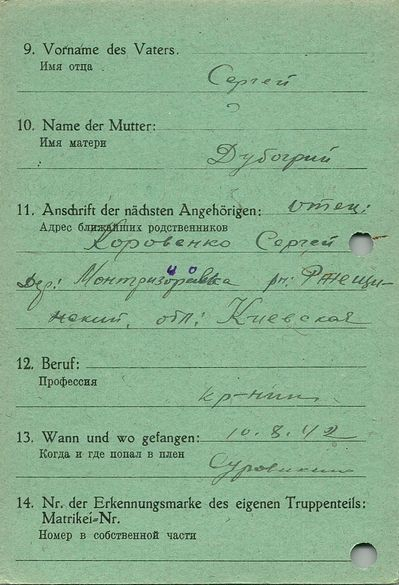 9. Vorname des Vaters.
Имя отца
Сергей
10. Name der Mutter:
Имя матери
Дубогрий
11. Anschrift der nächsten Angehörigen: отец:
Адрес ближайших родственников
Коровенко Сергей
Дер.: рн: Ржещи-
невский, обл: Киевская
12. Beruf:
Профессия
кр-нин
13. Wann und wo gefangen: 10.8.42
Когда и где попал в плен
Суровикино
14. Nr. der Erkennungsmarke des eigenen Truppenteils:
Matrikel=Nr.
Номер в собственной части